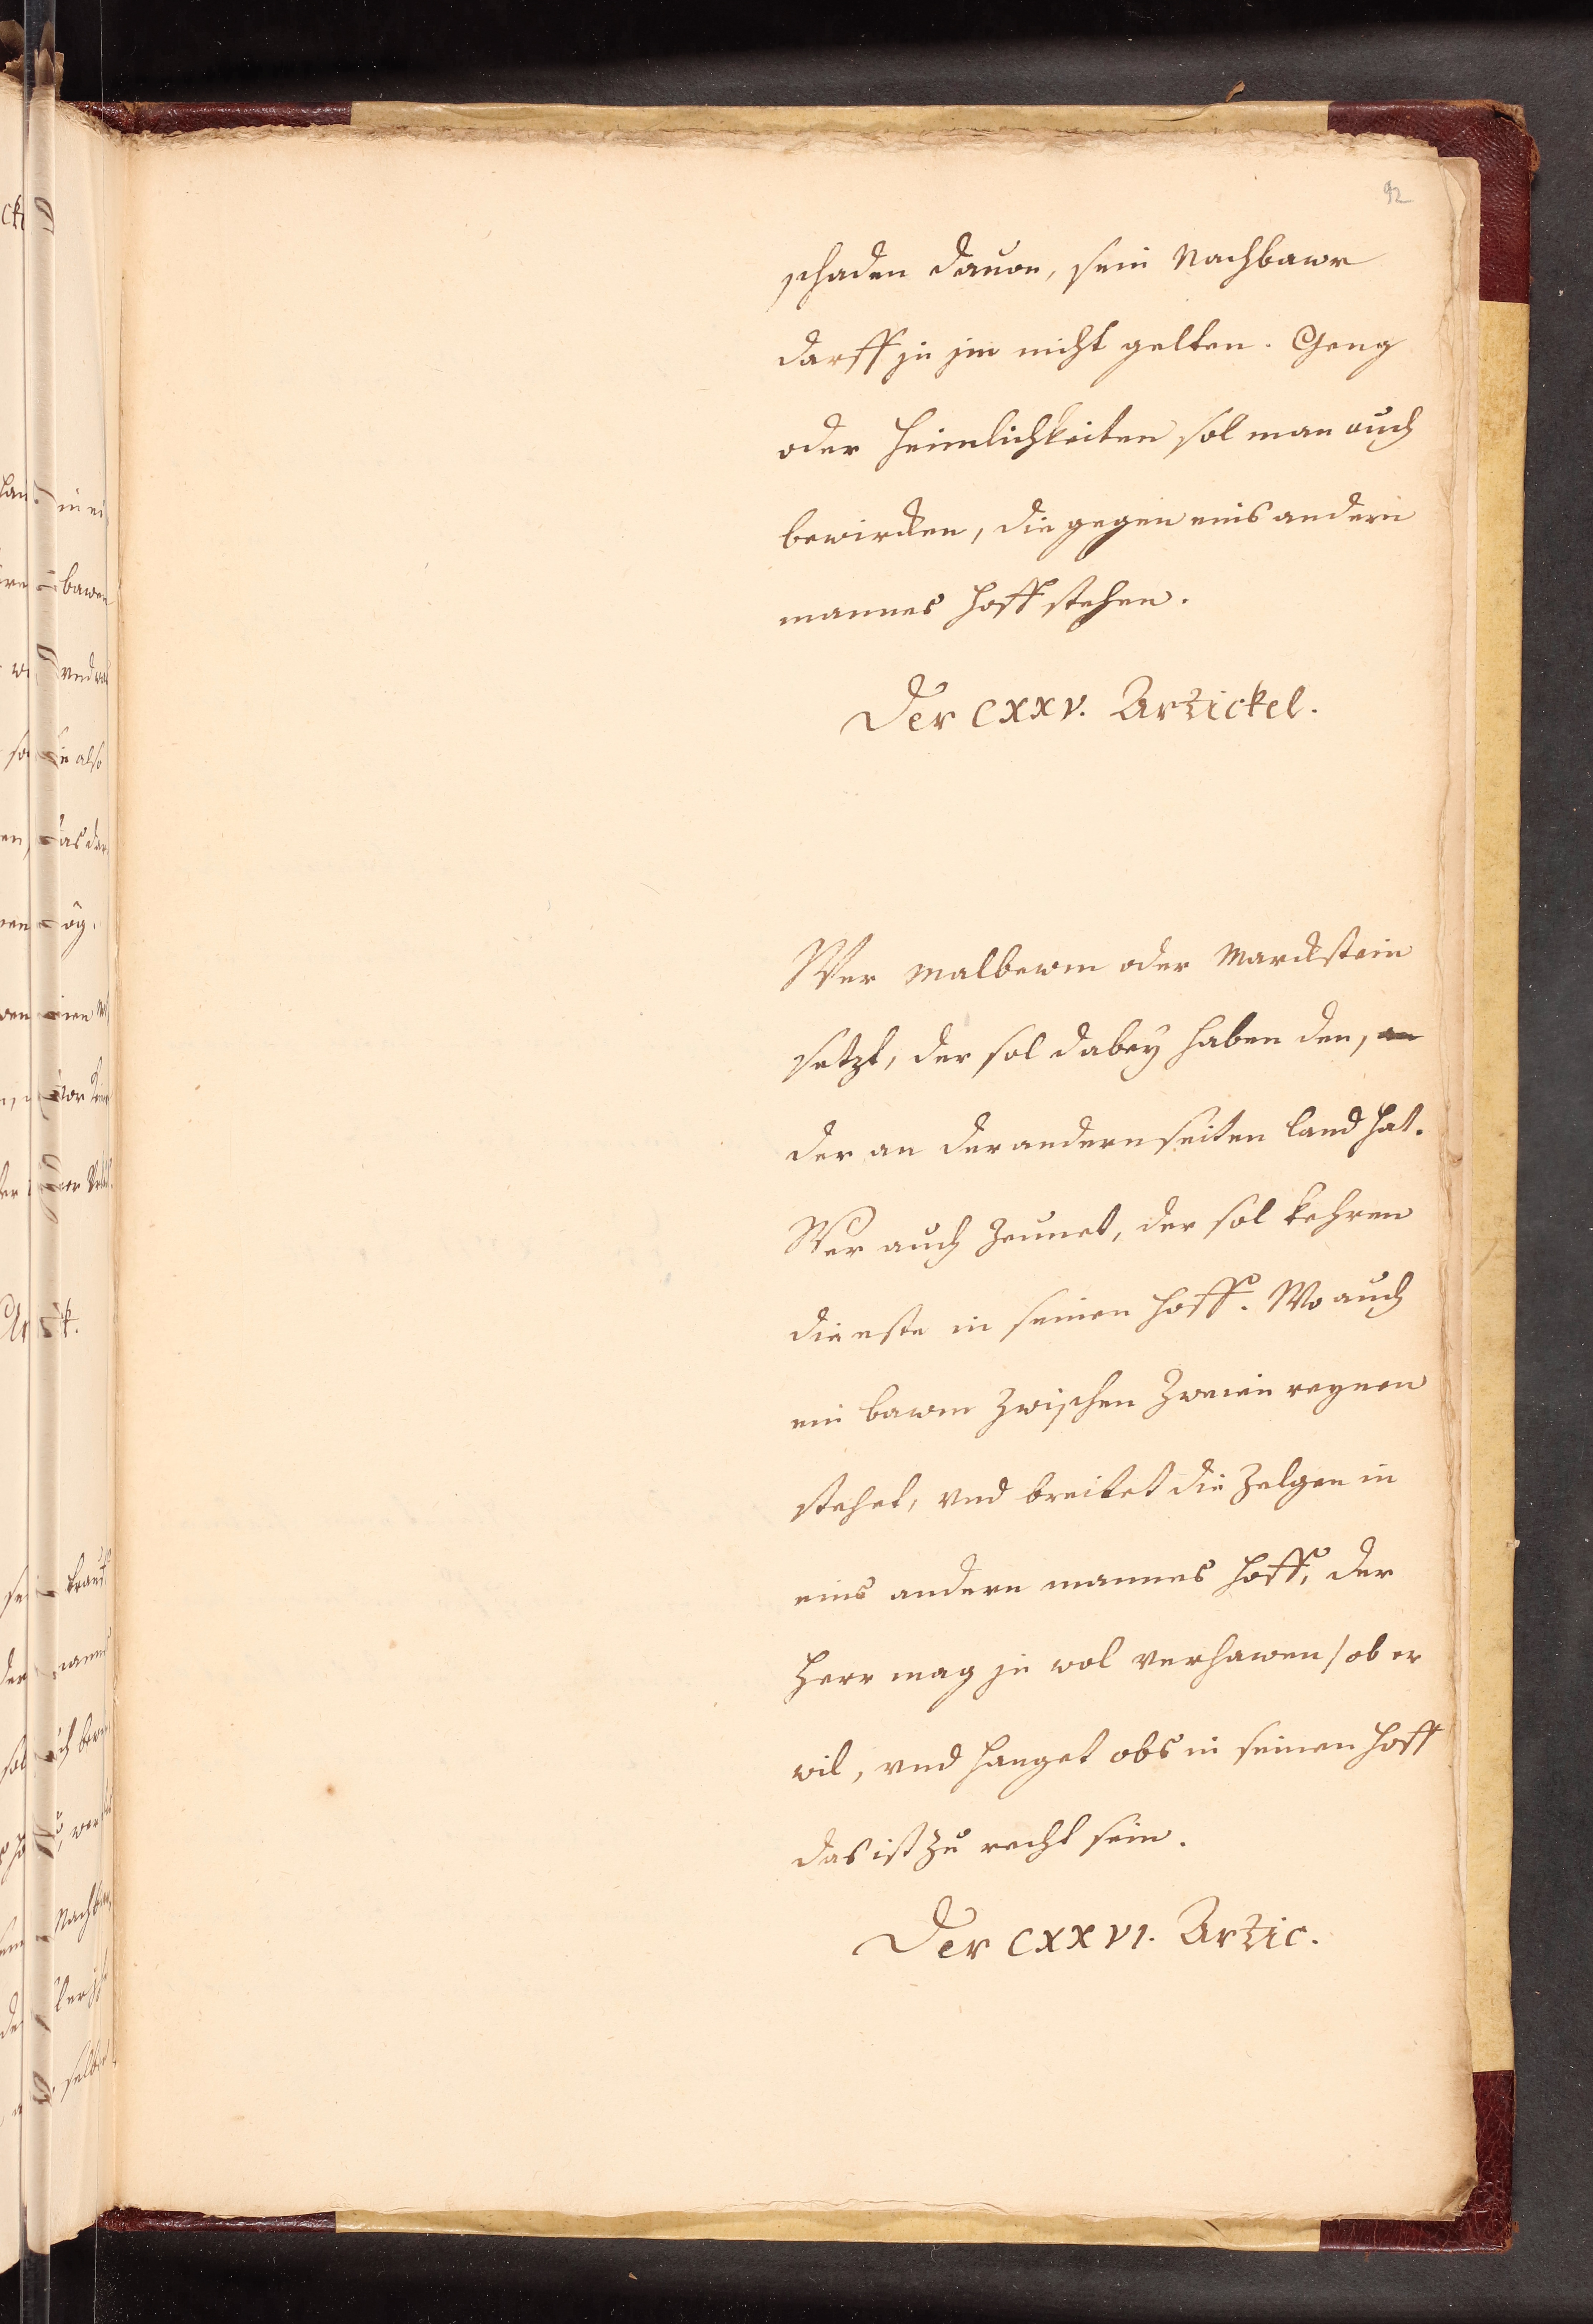 92
schaden dauon, sein Nachbawr
darff jn jm nicht gelten. Geng
oder heimlichkeiten sol man auch
bewircken, die gegen eins andern
mannes hoff stehen.
Der CXXV. Artickel.
Wer Malbewm oder Marckstein
setzt, der sol dabey haben den,
der an der andern seiten land hat.
Wer auch zeunet, der sol kehren
die este in seinen hoff. Wo auch
ein bawm zwischen zweien reynen
stehet, vnd breitet die zelgen in
eins andern mannes hoff, der
Herr mag jn wol verhawen / ob er
wil, vnd hanget obs in seinen hoff
das ist zu recht sein.
Der CXXVI. Artic.